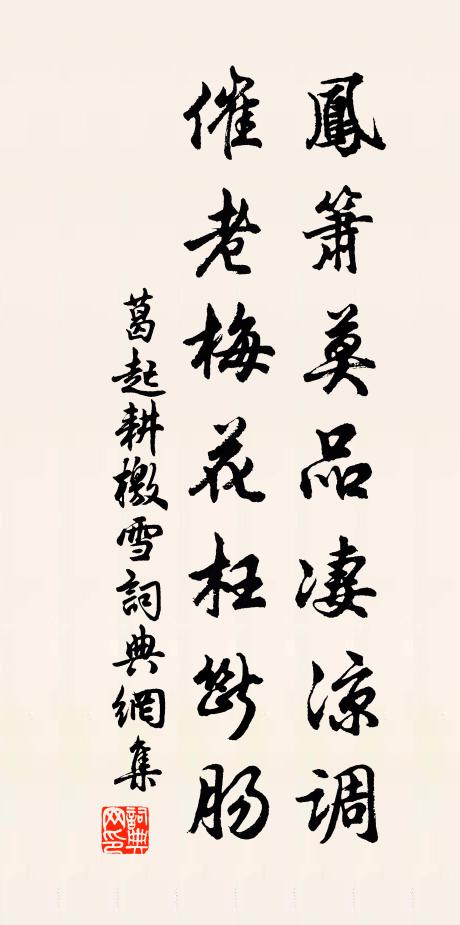 鳳簫莫品凄涼調
催老梅花枉斷腸
葛起耕檄雪詞典網集
詞典
网印